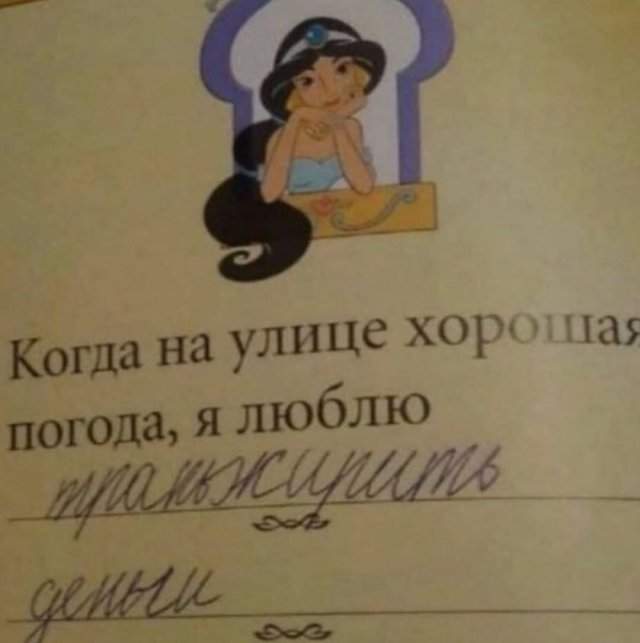 Когда на улице хорошая
погода, я люблю
траньжирить
деньги